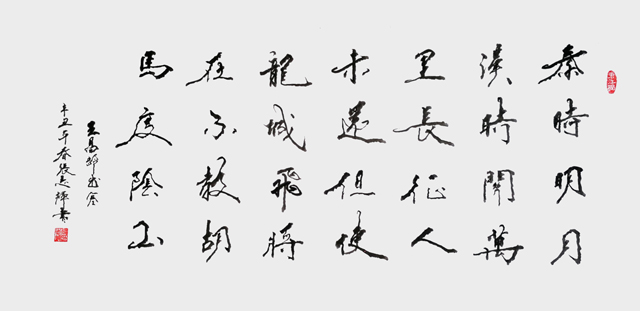 秦時明月
漢時關萬
里長征人
未還但使
龍城飛將
在不教胡
馬度陰山
王昌齡出塞
辛丑年春張志輝書